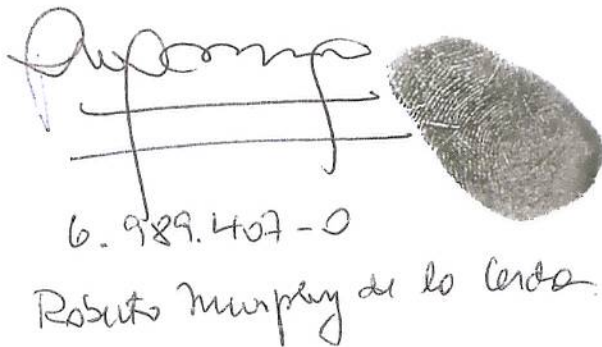 6.989.407-0
Roberto Murphy de la Cerda